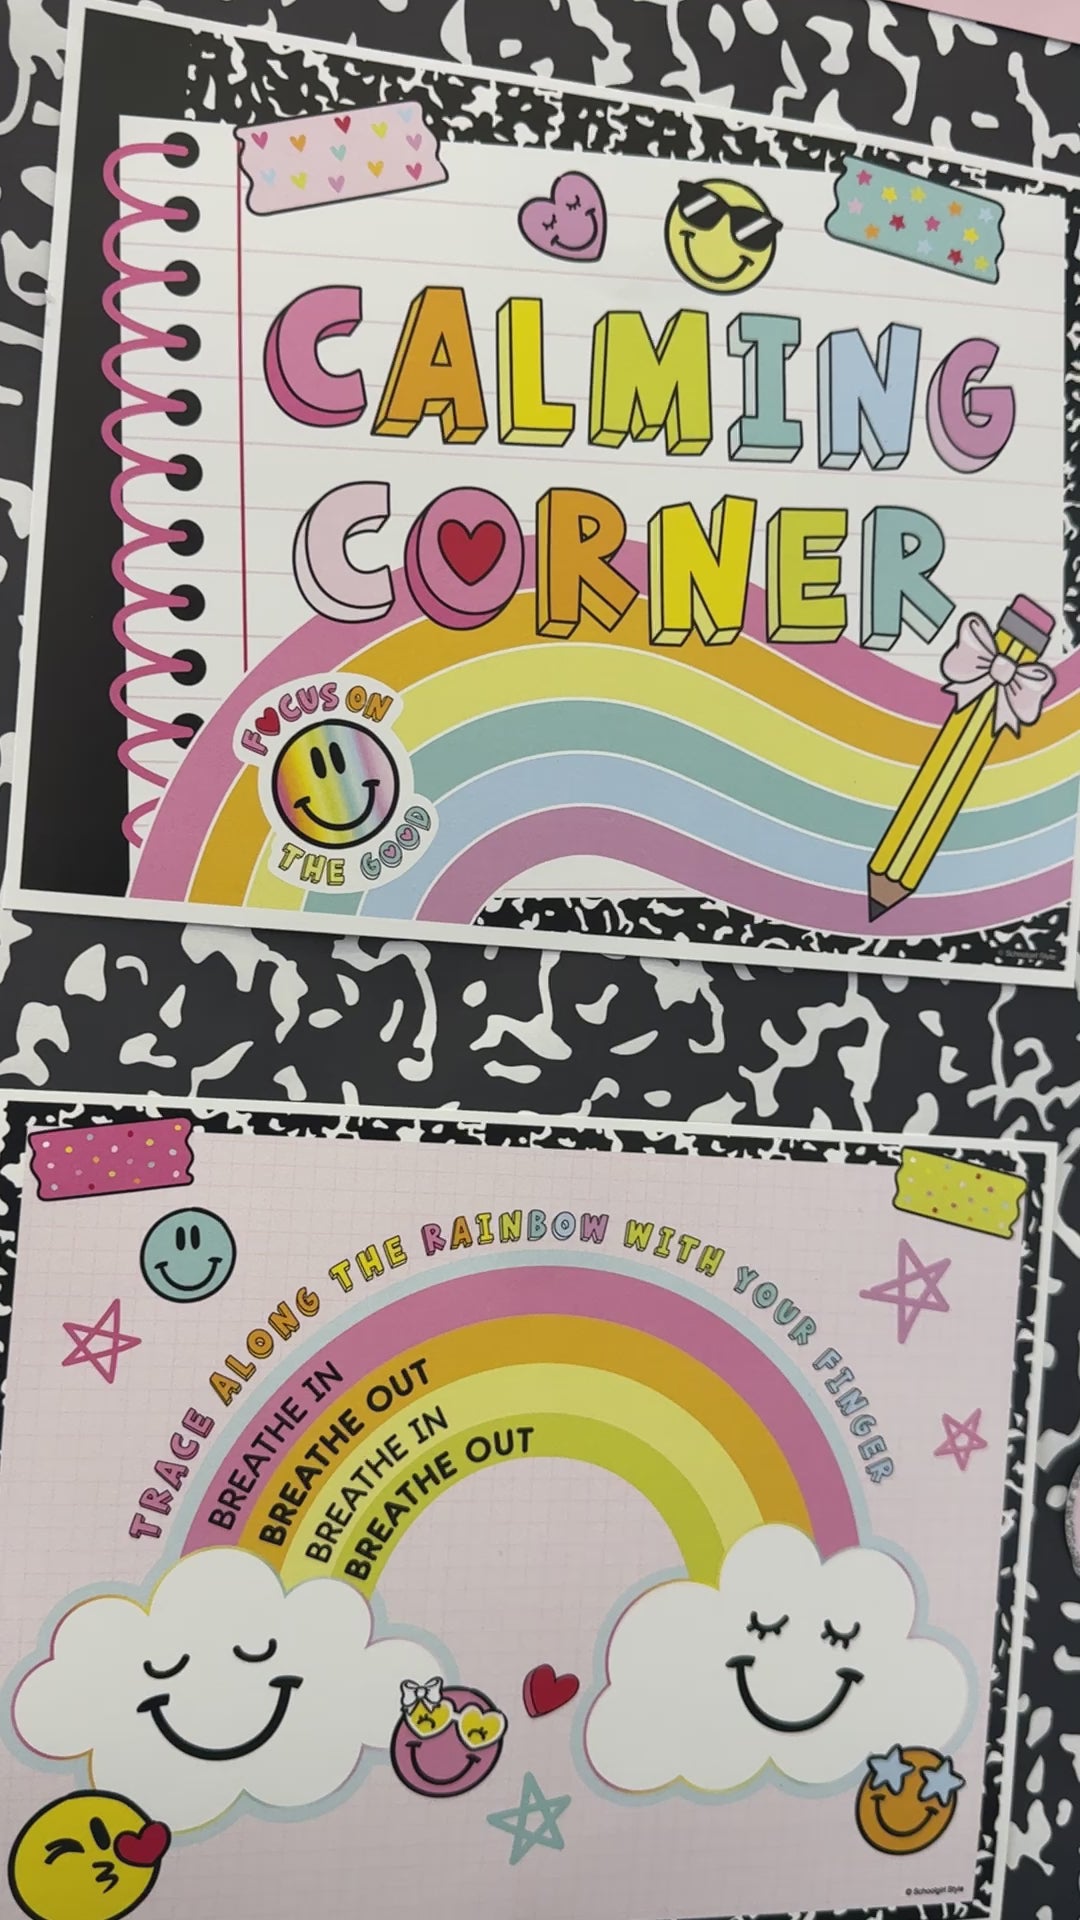 CALMING
CORNER
FOCUS ON
THE GOOD
© Schoolgirl Style
TRACE ALONG THE RAINBOW WITH YOUR FINGER
BREATHE IN
BREATHE OUT
BREATHE IN
BREATHE OUT
© Schoolgirl Style